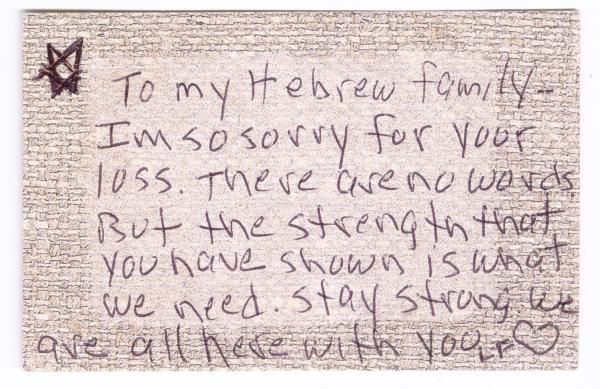 To my Hebrew family -
I'm so sorry for your
loss. There are no words.
But the strength that
you have shown is what
we need. Stay strong we
are all here with you